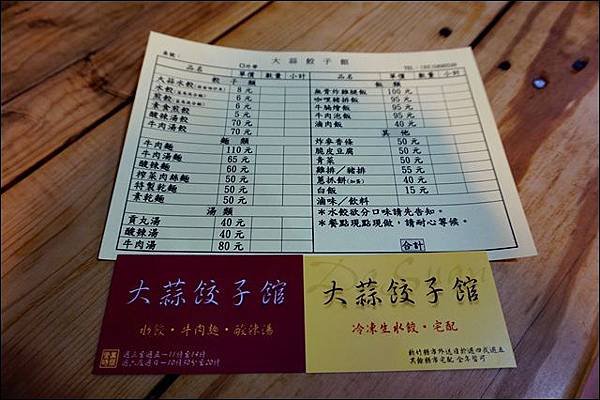 大蒜餃子館
桌號：
□外帶
品名 單價 數量 小計
餃子類
大蒜水餃 8元
水餃 6元
水餃 6元
素食煎餃 5元
酸辣湯餃 70元
牛肉湯餃 70元
麵類
牛肉麵 110元
牛肉湯麵 65元
酸辣麵 60元
榨菜肉絲麵 50元
特製乾麵 50元
素乾麵 50元
湯類
貢丸湯 40元
酸辣湯 40元
牛肉湯 80元
品名 單價 數量 小計
飯類
無骨炸雞腿飯 100元
咖哩豬排飯 95元
牛腩燴飯 95元
牛肉泡飯 95元
滷肉飯 40元
其他
炸麥香條 50元
脆皮豆腐 50元
青菜 50元
雞排/豬排 55元
蔥抓餅(加蛋) 40元
白飯 15元
滷味/飲料
*水餃欲分口味請先告知。
*餐點現點現做，請耐心等候。
合計
大蒜餃子館
水餃·牛肉麵·酸辣湯
營業時間
大蒜餃子館
冷凍生水餃·宅配
新竹縣市外送請於週四或週五
其餘縣市宅配 全年皆可